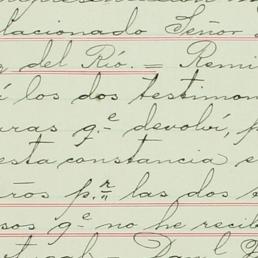 elacionado Señor
del Rió. = Remi
í los dos testimon
uras q.e devolví, p
esta constancia e
ños p.r las dos
sos q.e no he recib